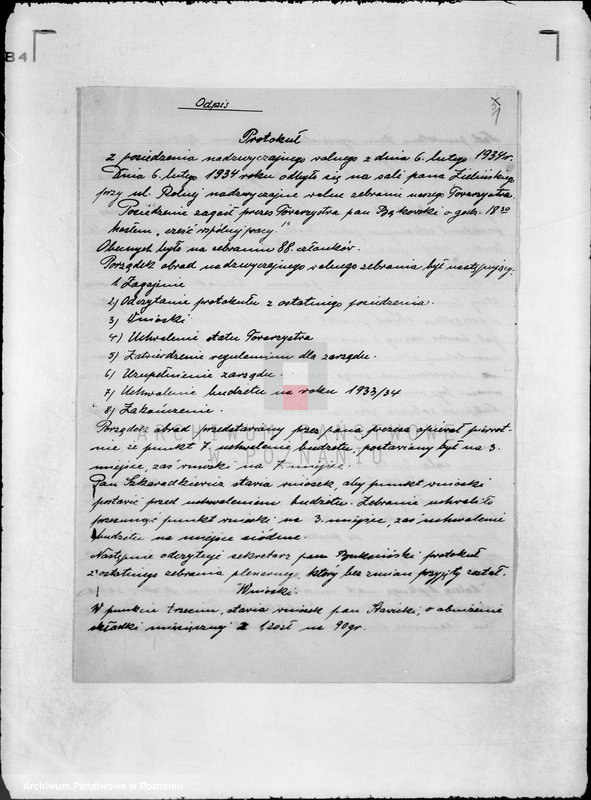 84
Odpis
1
Protokuł
z posiedzenia nadzwyczajnego walnego z dnia 6. lutego 1934 r.
Dnia 6. lutego 1934 roku odbyło się na sali pana
przy ul. Rolnej nadzwyczajne walne zebranie naszego Towarzystwa.
Posiedzenie zagaił prezes Towarzystwa pan Bąkowski o godz. 18 30
hasłem „cześć wspólnej pracy."
Obecnych było na zebraniu 88. członków.
Porządek obrad nadzwyczajnego walnego zebrania był następujący.
1. Zagajenie
2) Odczytanie protokułu z ostatniego posiedzenia.
3) Wnioski
4) Uchwalenie statu Towarzystwa
5) Zatwierdzenie regulaminu dla zarządu.
6) Uzupełnienie zarządu.
7) Uchwalenie budżetu na roku 1933/34
8) Zakończenie.
Porządek obrad przedstawiony przez pana prezesa opiewał pierwot-
nie, że punkt 7. uchwalenie budżetu postawiony był na 3.
miejsce, zaś wnioski na 7 miejsce.
Pan Szkaradkiewicz stawia wniosek, aby punkt wnioski
postawić przed uchwaleniem budżetu. Zebranie uchwaliło
przesunąć punkt wnioski na 3. miejsce, zaś uchwalenie
budżetu na miejsce siódme.
Następnie odczytuje sekretarz pan protokuł
z ostatniego zebrania plenarnego, który bez zmian przyjęty został.
Wnioski.
W punkcie trzecim, stawia wniosek pan Stawicki, o obniżenie
składki miesięcznej z 1,20 zł na 90 gr.
ARCHIWUM PAŃSTWOWE
W POZNANIU
Archiwum Państwowe w Poznaniu